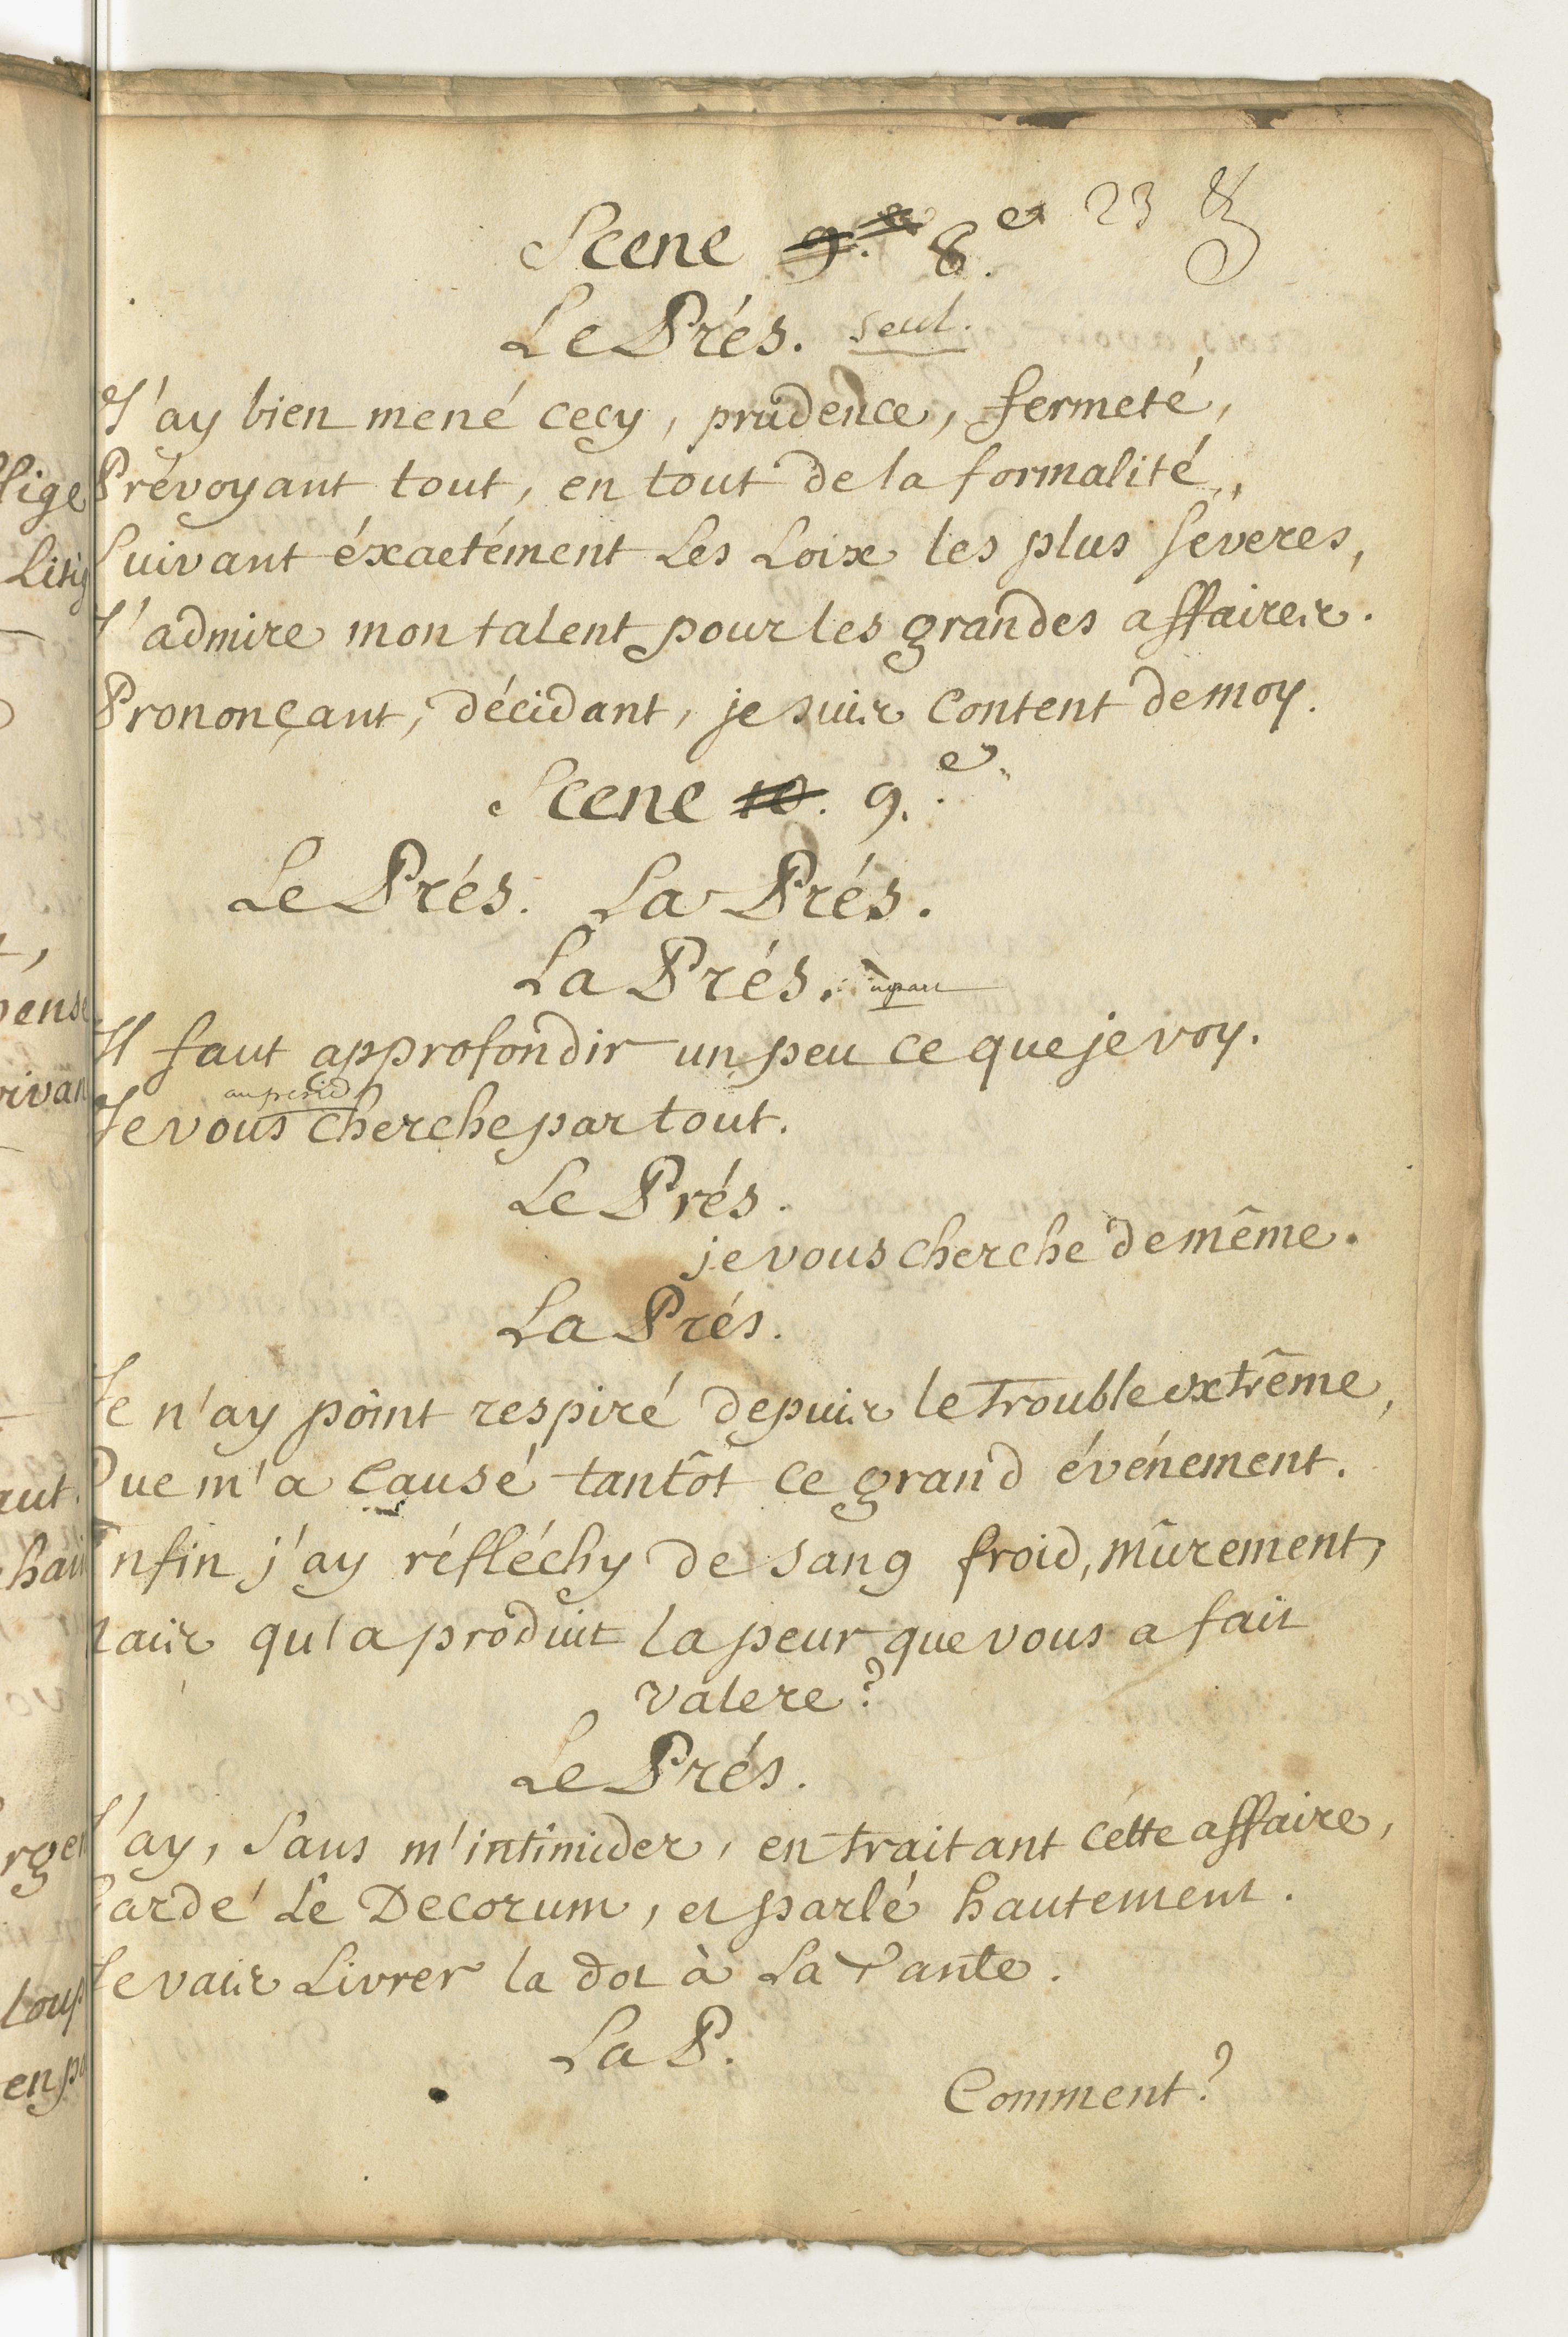 23
Scene 9.e 8.e
Le Prés. seul.
J'ay bien mené cecy, prudence, fermeté,
Prévoyant tout, en tout de la formalité,
Suivant éxactément Les Loix les plus severes,
J'admire mon talent pour les grandes affaires.
Prononçant, décidant, je suis Content de moy.
Scene 10. 9.e
Le Prés. La Prés.
La Prés. apart
Il faut approfondir un peu ce que je voy.
au présid
Je vous cherche par tout.
Le Prés.
je vous cherche de même.
La Prés.
Je n'ay point respiré depuis le trouble extrême,
Que m'a Causé tantôt ce grand événement.
Enfin j'ay réfléchy de sang froid, mûrement,
mais qu'a produit la peur que vous a fait
valere?
Le Prés.
J'ay, Sans m'intimider, en traitant cétte affaire,
Gardé Le Decorum, et parlé hautement.
Je vais Livrer la dot à La Tante.
La P.
Comment?